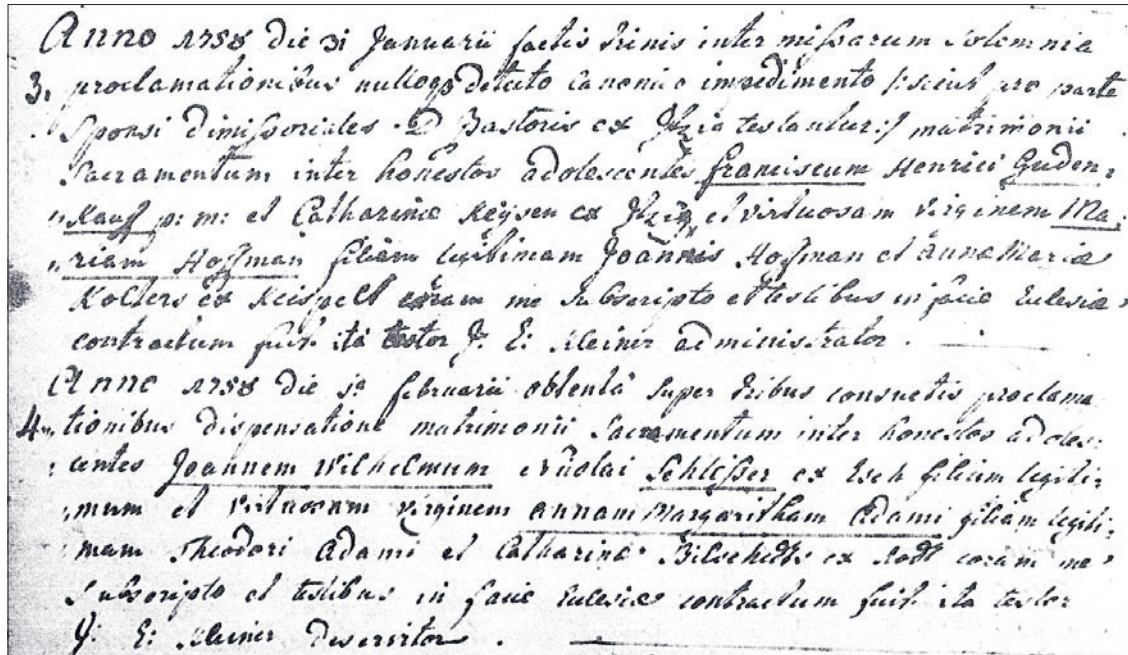 Anno 1758 die 31 Januarii factis trinis inter missarum solemnia
3. proclamationibus nulloq3 detecto canonico impedimento /: sicut pro parte
Sponsi dimissoriales D Pastoris ex testantur :/ matrimonii
Sacramentum inter honestos adolescentes Franciscum Henrici Guden,
"Kauf p: m: et Catharinae Keysen ex et virtuosam virginem Ma,
"riam Hoffman filiam legitimam Joannis Hoffman et Anna Maria
Kolters ex Keispelt coram me subscripto et testibus in facie Eclesiae
contractum fuit. ita testor J. E: Kleiner administrator.
Anno 1758 die februarii obtentâ super tribus consuetis proclama
4. tionibus dispensatione matrimonii Sacramentum inter honestos adoles:
centes Joannem Wilhelmum Nicolai Schleisser ex Esch filium legiti,
,mum et virtuosam virginem Annam Margaritham Adami filiam legiti,
mam Theodori Adami et Catharina ex coram me
Subscripto et testibus in facie Eclesiae contractum fuit. ita testor
J: E: Kleiner deservitor.